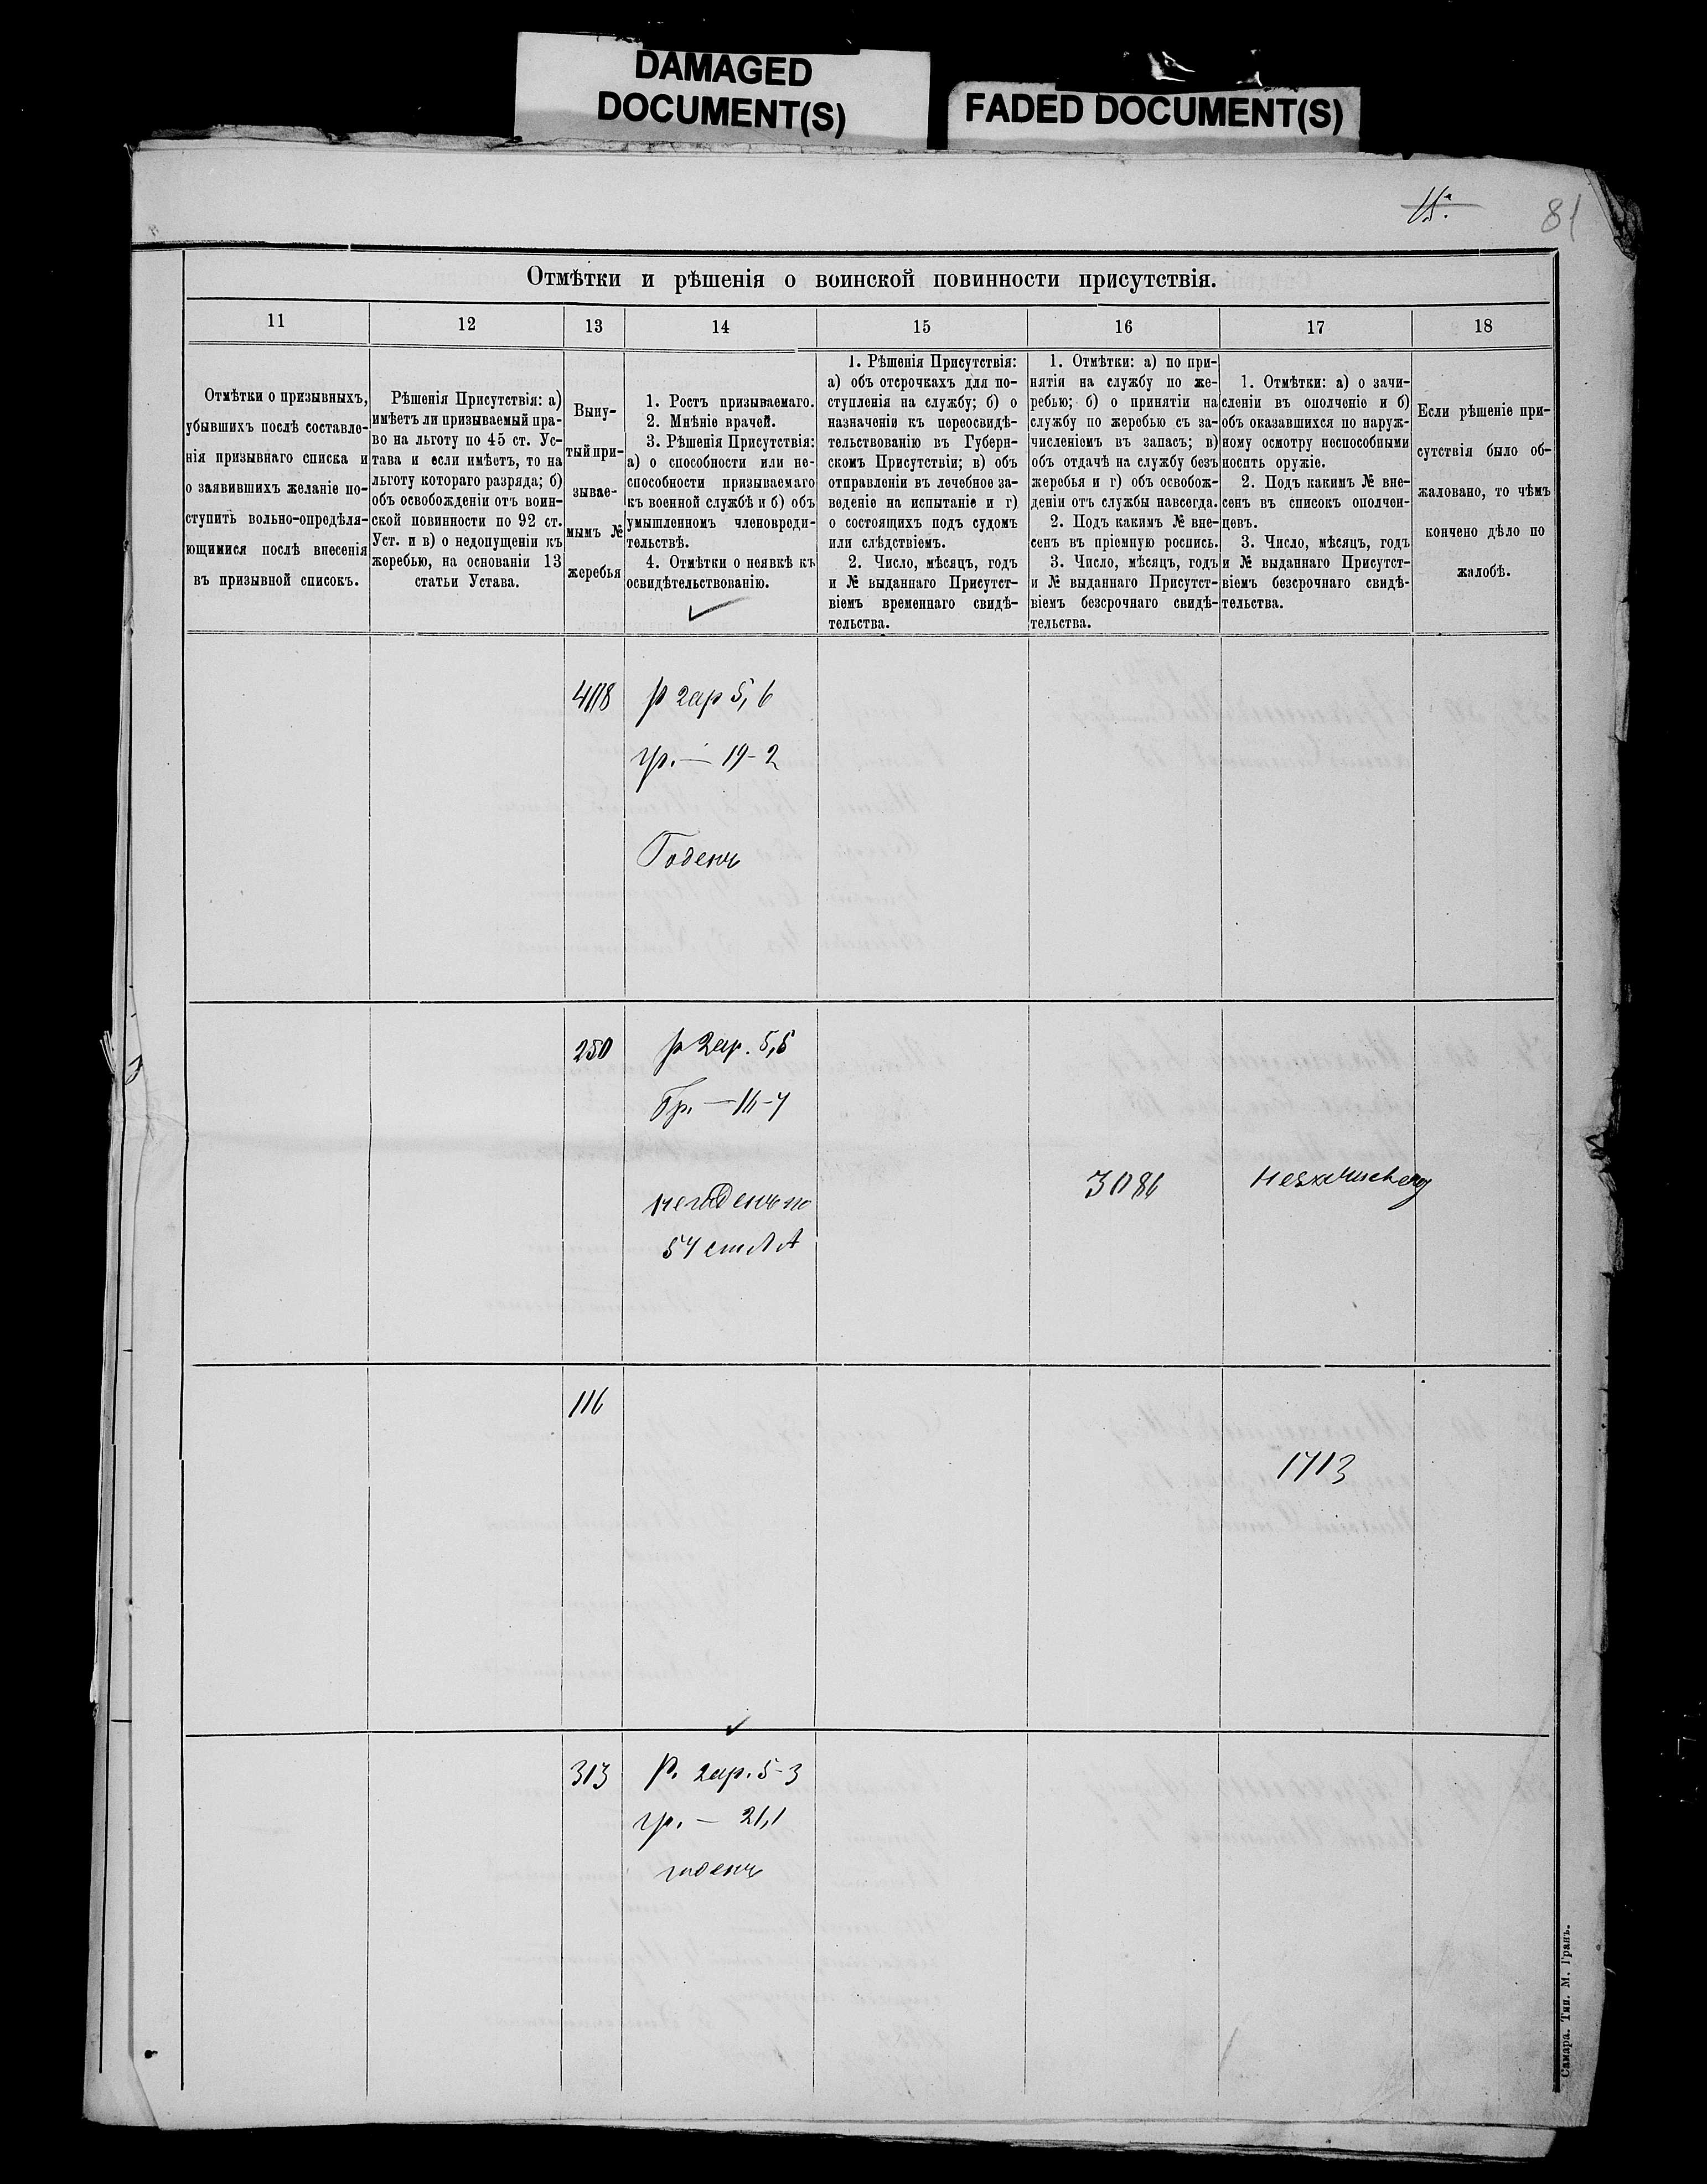 DAMAGED
DOCUMENT(S)
FADED DOCUMENT(S)
81
Отмѣтки и рѣшенія о воинской повинности присутствія.
11 12 13 14 15 16 17 18
Отмѣтки о призывныхъ,
убывшихъ послѣ составле-
нія призывнаго списка и
о заявившихъ желаніе по-
ступить вольно-опредѣля-
ющимися послѣ внесенія
въ призывной списокъ.
Рѣшенія Присутствія: а)
имѣетъ ли призываемый пра-
во на льготу по 45 ст. Ус-
тава и если имѣетъ, то на
льготу котораго разряда; б)
объ освобожденіи отъ воин-
ской повинности по 92 ст.
Уст. и в) о недопущеніи къ
жеребью, на основаніи 13
статьи Устава.
Выну-
тый при-
зывае-
мымъ №
жеребья
1. Ростъ призываемаго.
2. Мнѣніе врачей.
3. Рѣшенія Присутствія:
а) о способности или не-
способности призываемаго
къ военной службѣ и б) объ
умышленномъ членовреди-
тельствѣ.
4. Отмѣтки о неявкѣ къ
освидѣтельствованію.
1. Рѣшенія Присутствія:
а) объ отсрочкахъ для по-
ступленія на службу; б) о
назначеніи къ переосвидѣ-
тельствованію въ Губерн-
скомъ Присутствіи; в) объ
отправленіи въ лечебное за-
веденіе на испытаніе и г)
о состоящихъ подъ судомъ
или слѣдствіемъ.
2. Число, мѣсяцъ, годъ
и № выданнаго Присутст-
віемъ временнаго свидѣ-
тельства.
1. Отмѣтки: а) по при-
нятіи на службу по же-
ребью; б) о принятіи на
службу по жеребью съ за-
численіемъ въ запасъ; в)
объ отдачѣ на службу безъ
жеребья и г) объ освобож-
деніи отъ службы навсегда.
2. Подъ какимъ № вне-
сенъ въ пріемную роспись.
3. Число, мѣсяцъ, годъ
и № выданнаго Присутст-
віемъ безсрочнаго свидѣ-
тельства.
1. Отмѣтки: а) о зачи-
сленіи въ ополченіе и б)
объ оказавшихся по наруж-
ному осмотру неспособными
носить оружіе.
2. Подъ какимъ № вне-
сенъ въ списокъ ополчен-
цевъ.
3. Число, мѣсяцъ, годъ
и № выданнаго Присутст-
віемъ безсрочнаго свидѣ-
тельства.
Если рѣшеніе при-
сутствія было об-
жаловано, то чѣмъ
кончено дѣло по
жалобѣ.
р 2 ар 5,6
гр. — 19-2
Годенъ
250
р 2 ар. 5,5
Гр. — 16-4
негоденъ по
54 ст Л А
3086
116
1713
313
Р. 2 ар. 5-3
гр. — 21,1
годенъ
Самара. Тип. М. Гранъ.